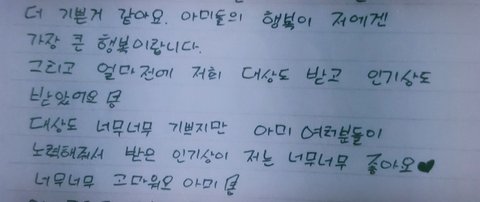 더 기쁜거 같아요. 아미들의 행복이 저에겐
가장 큰 행복이랍니다.
그리고 얼마전에 저희 대상도 받고 인기상도
받았어요
대상도 너무너무 기쁘지만 아미 여러분들이
노력해줘서 받은 인기상이 저는 너무너무 좋아요♥
너무너무 고마워요 아미